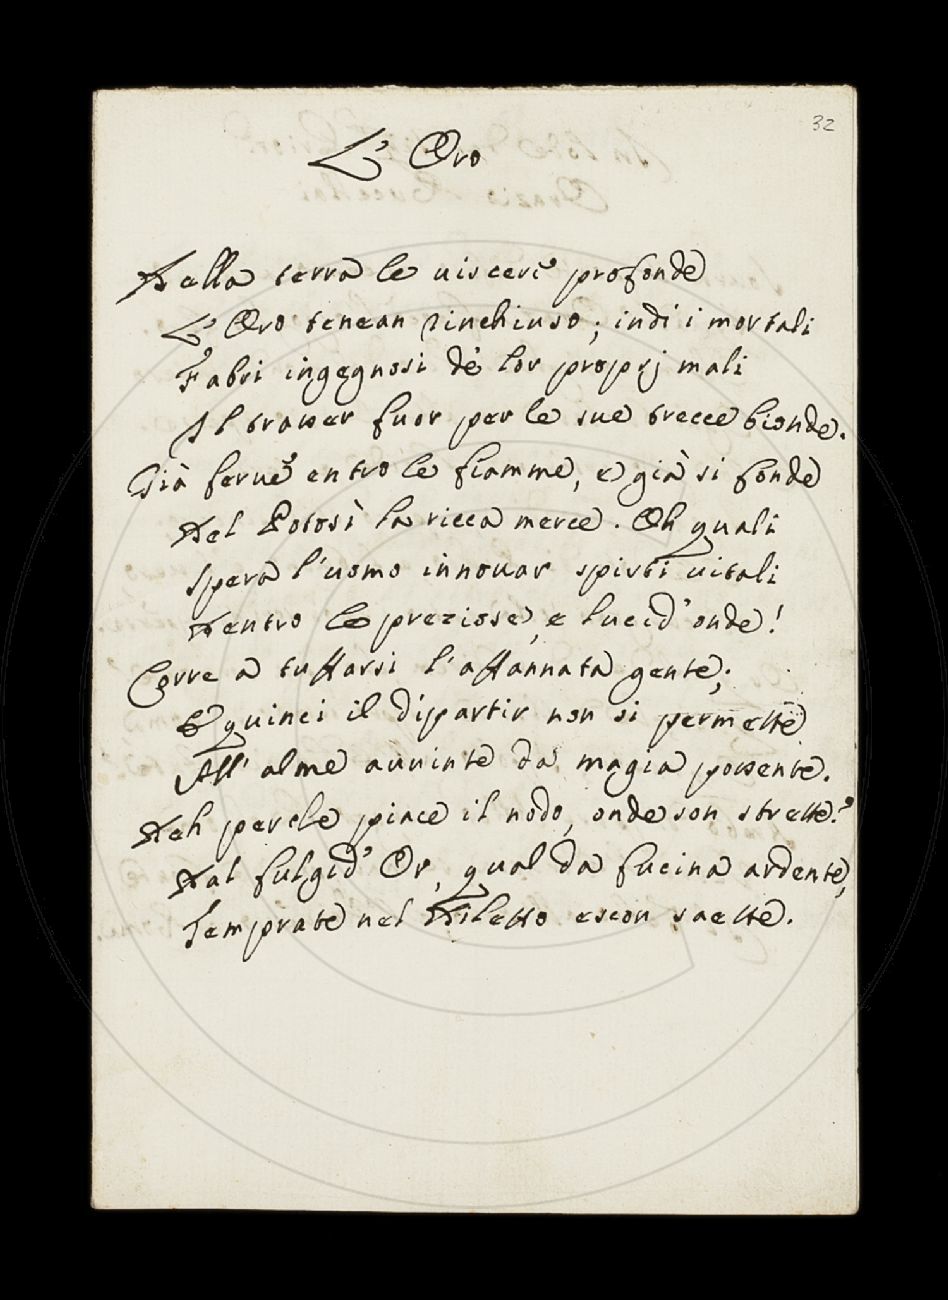 32
L' Oro
Della terra le visceri profonde
L' Oro tenean rinchiuso; indi i mortali
Fabri ingegnosi de' lor proprj mali
Il trasser fuor per le sue trecce bionde.
Già ferve entro le fiamme, e già si fonde
Del Potosì la ricca merce. Oh quali
Spera l'uomo innovar spirti vitali
Dentro le preziose, e lucid' onde!
Corre a tuffarsi l'affannata gente;
E quinci il dipartir non si permette
All' alme avvinte da magia possente.
Deh perchè piace il nodo, onde son strette?
Dal fulgid' Or, qual da fucina ardente,
Temprate nel Diletto escon saette.